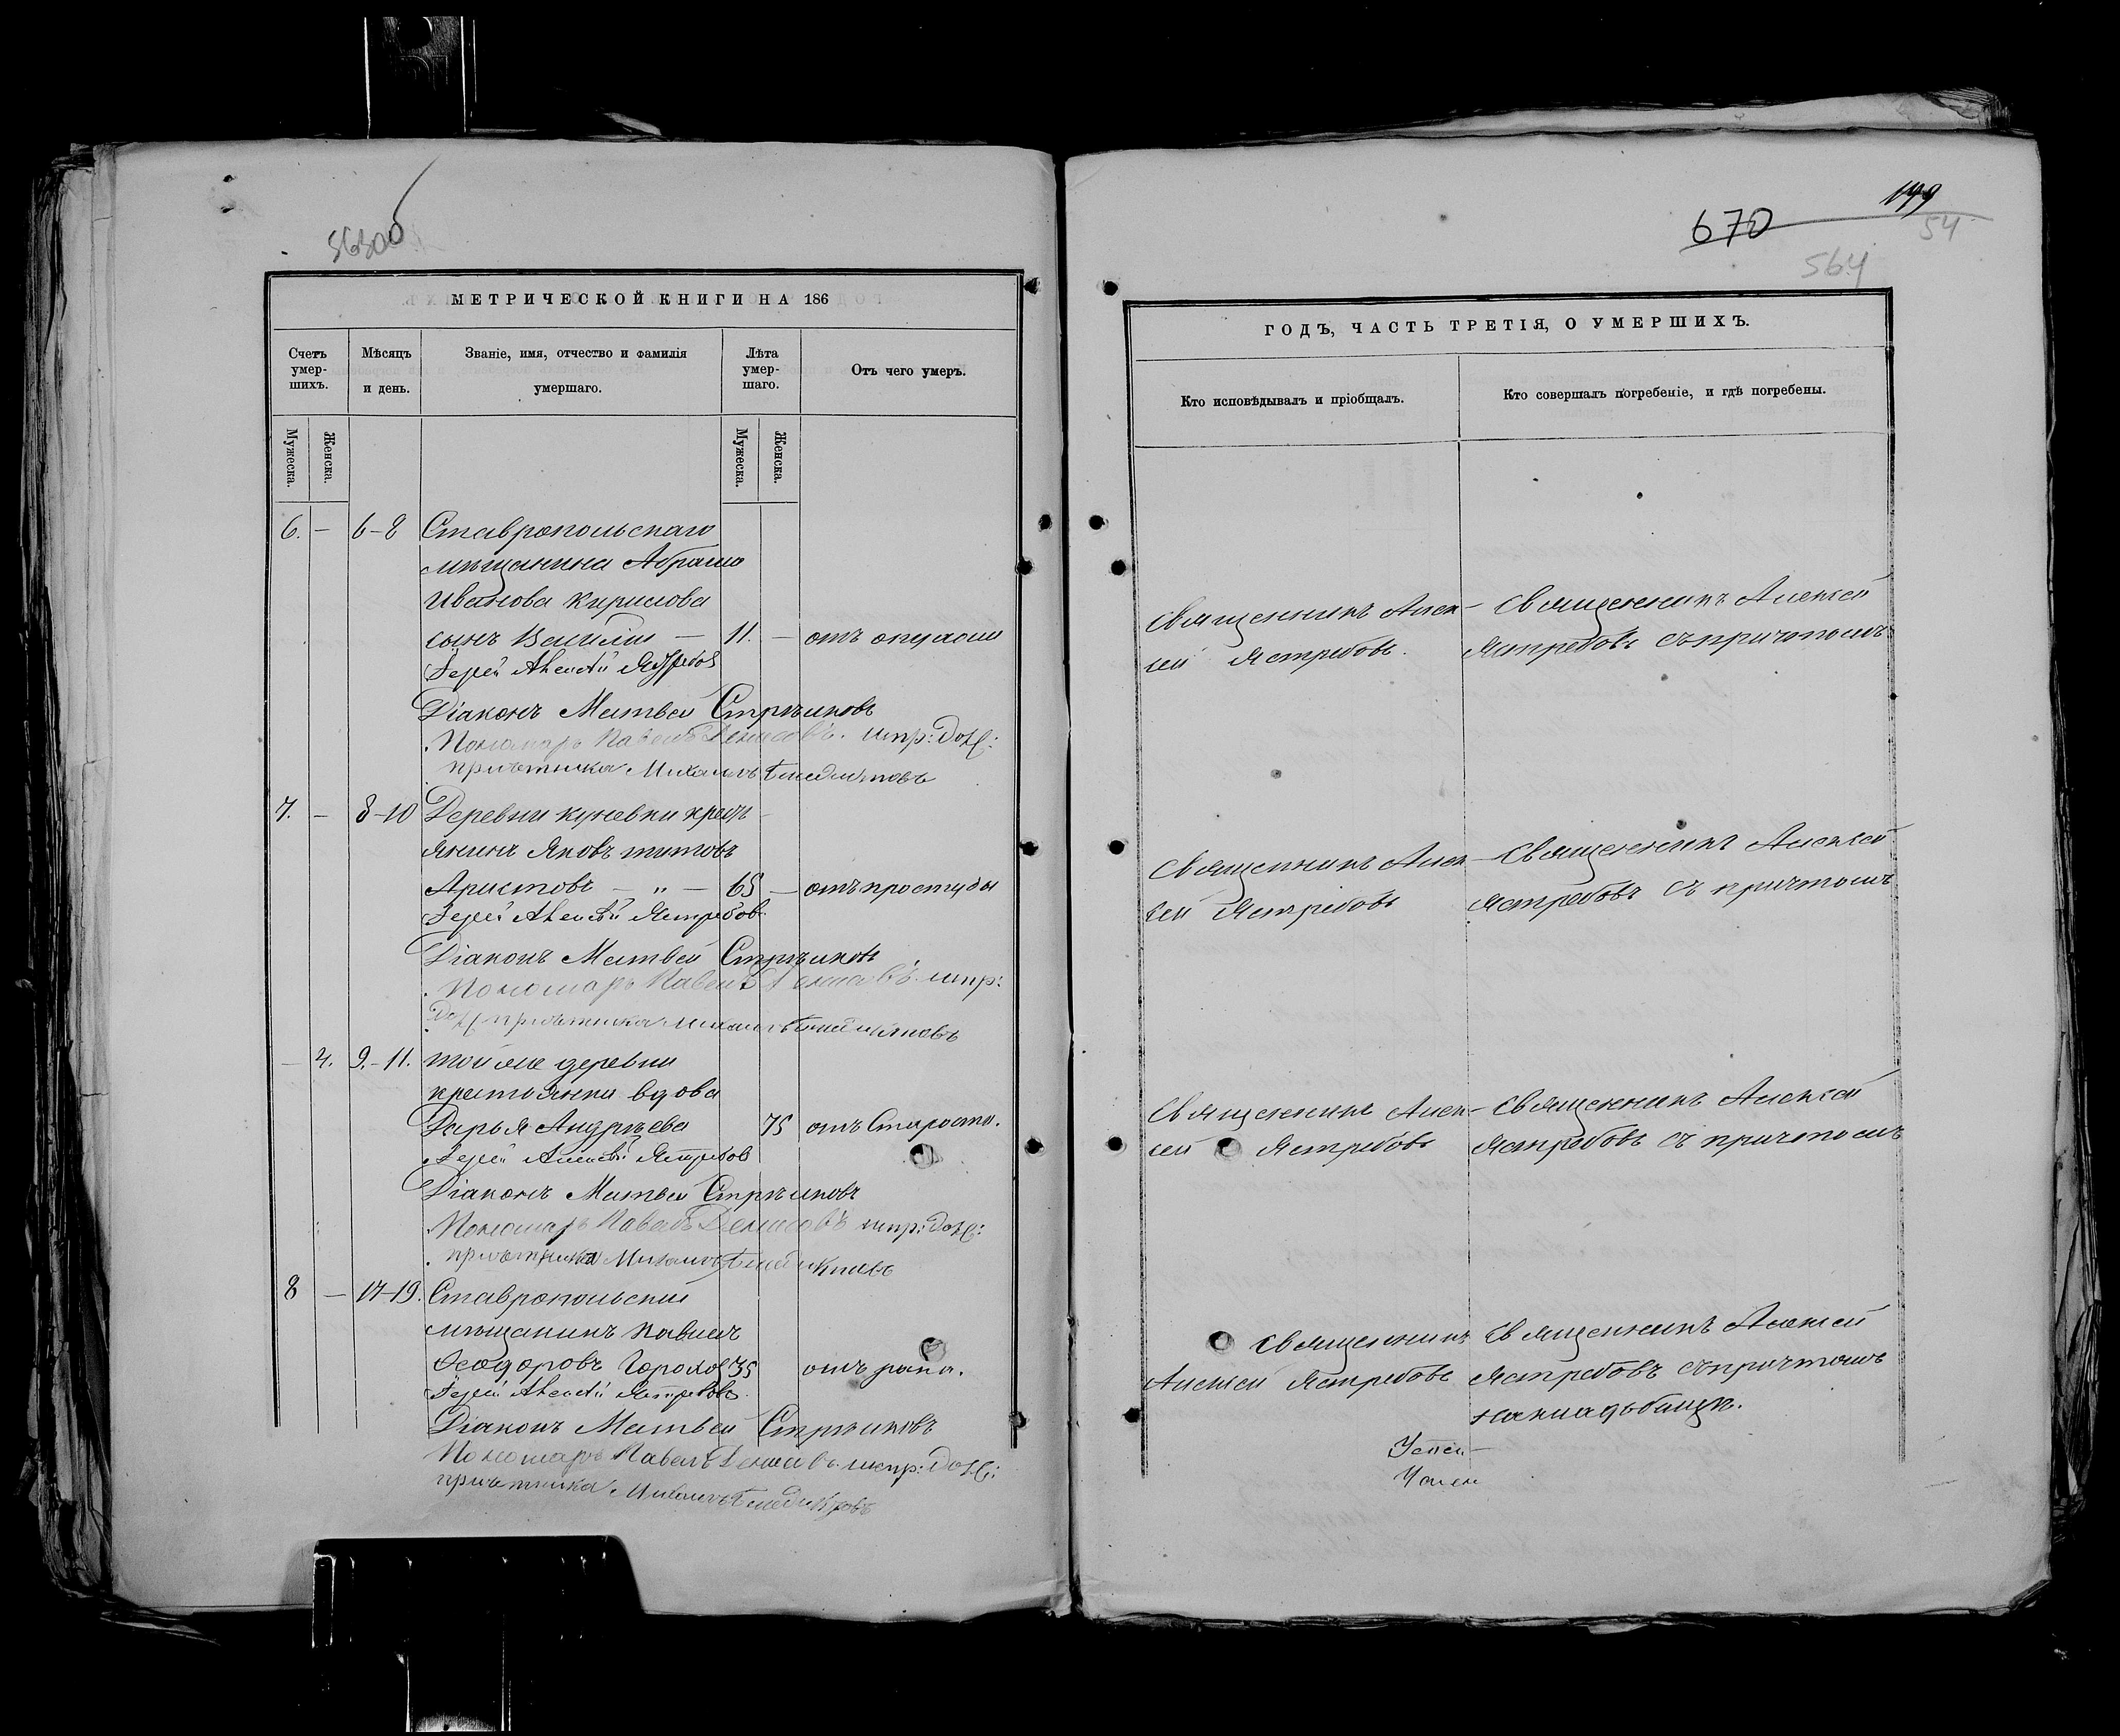 563об
МЕТРИЧЕСКОЙ КНИГИ НА 186
Счетъ умер-шихъ.
Мѣсяцъ и день.
Званіе, имя, отчество и фамилія умершаго.
Лѣта умер-шаго.
Отъ чего умеръ.
Мужеска.
Женска.
Мужеска.
Женска.
6. — 6–8 Ставропольскаго
мѣщанина Абрама
Иванова Кирилова
сынъ Василій — 11. — отъ опухоли
Іерей Алексѣй Ястребов
Діаконъ Матвей Стрѣлковъ
Пономарь Павелъ Денисовъ. испр: дол:
причетника Михаилъ
7. — 8–10 Деревни Куневки кресть
янинъ Яковъ Титовъ
Аристовъ — „ — 65 — отъ простуды
Іерей Алексѣй Ястребов.
Діаконъ Матвей Стрѣлковъ
Пономарь Павелъ Денисовъ. испр:
дол: причетника Михаилъ
— 4. 9.–11. Той же деревни
крестьянка вдова
Дарья Андрѣева 75 отъ Старости.
Іерей Алексѣй Ястребов
Діаконъ Матвей Стрѣлковъ
Пономарь Павелъ Денисовъ испр: дол:
причетника Михаилъ
8 — 17–19. Ставропольскій
мѣщанинъ Павелъ
Ѳеодоровъ Горохов 35 отъ рака.
Іерей Алексѣй Ястребовъ.
Діаконъ Матвей Стрѣлковъ
Пономарь Павелъ Денисовъ. испр: дол:
причетника Михаилъ
199
670
54
564
ГОДЪ, ЧАСТЬ ТРЕТІЯ, О УМЕРШИХЪ.
Кто исповѣдывалъ и пріобщалъ.
Кто совершалъ погребеніе, и гдѣ погребены.
Священникъ Алек- Священникъ Алексей
сей Ястребовъ. Ястребовъ съ причтомъ
Священникъ Алек- Священникъ Алексей
сей Ястребовъ Ястребовъ съ причтомъ
Священникъ Алек- Священникъ Алексей
сей Ястребовъ Ястребовъ съ причтомъ
Священникъ Священникъ Алексей
Алексей Ястребовъ Ястребовъ съ причтомъ
на кладбищѣ.